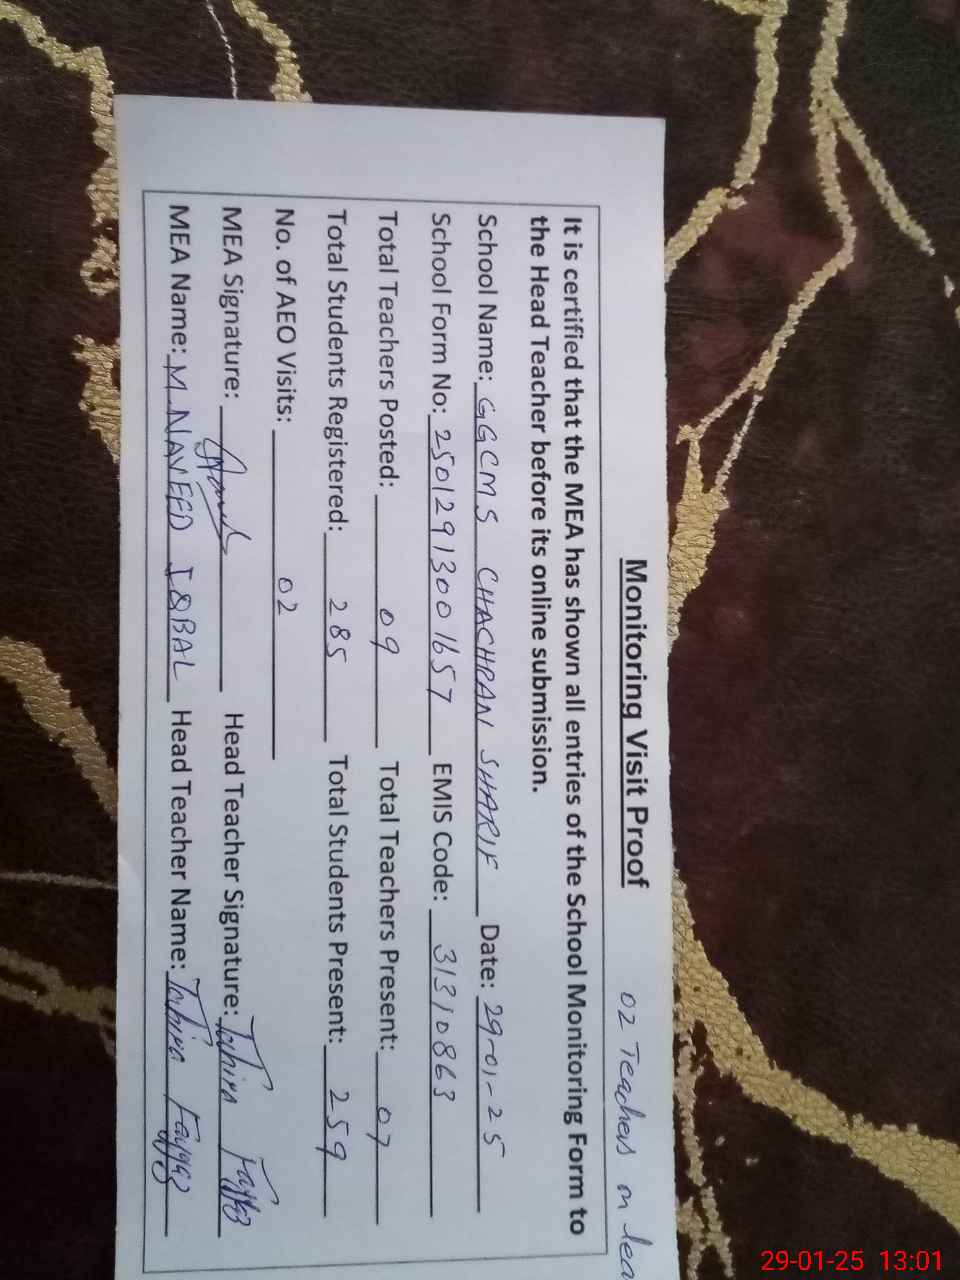 Monitoring Visit Proof
02 Teachers on lea
It is certified that the MEA has shown all entries of the School Monitoring Form to
the Head Teacher before its online submission.
School Name: GGCMS CHACHRAN SHARIF Date: 29-01-25
School Form No: 25012913001657 EMIS Code: 31310863
Total Teachers Posted: 09 Total Teachers Present: 07
Total Students Registered: 285 Total Students Present: 259
No. of AEO Visits: 02
MEA Signature: Head Teacher Signature: Tahira Fayyaz
MEA Name: M NAVEED IQBAL Head Teacher Name: Tahira Fayyaz
29-01-25 13:01